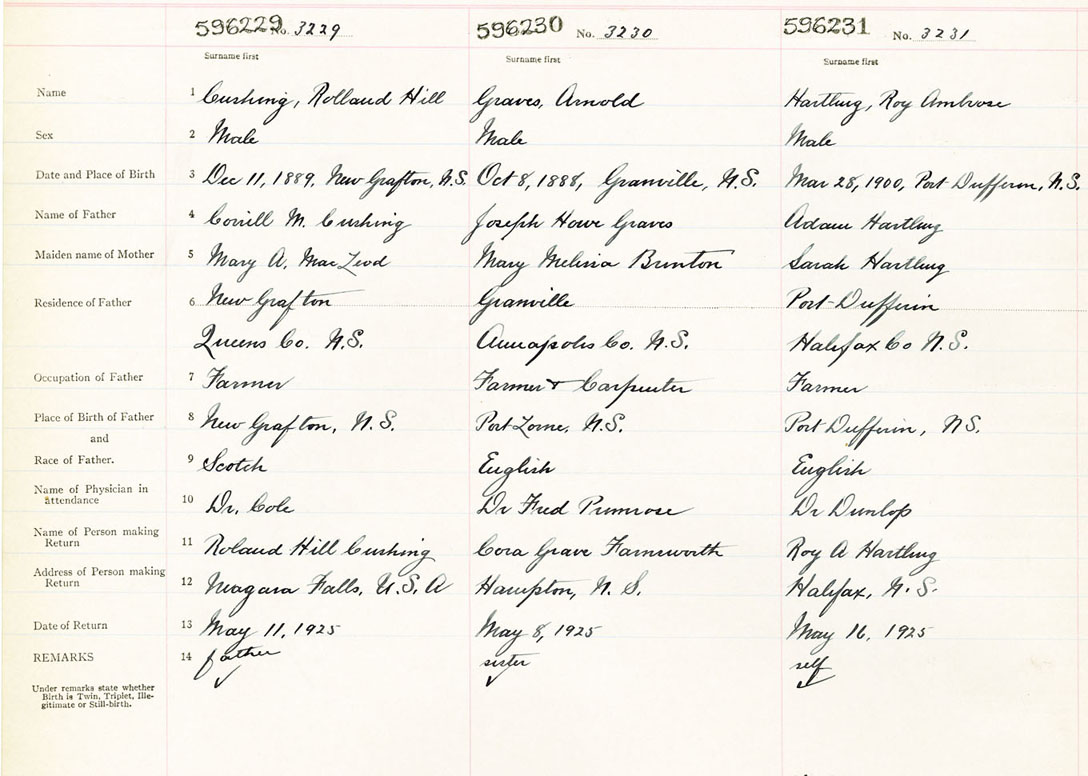 596229 No. 3229 596230 No. 3230 596231 No. 3231
Surname first Surname first Surname first
Name 1 Cushing, Rolland Hill Graves, Arnold Hartling, Roy Ambrose
Sex 2 Male Male Male
Date and Place of Birth 3 Dec 11, 1889, New Grafton, N.S. Oct 8, 1888, Granville, N.S. Mar 28, 1900, Port Dufferin, N.S.
Name of Father 4 M. Cushing Joseph Howe Graves Adam Hartling
Maiden name of Mother 5 Mary A. MacLeod Mary Melissa Brinton Sarah Hartling
Residence of Father 6 New Grafton Granville Port-Dufferin
Queens Co. N.S. Annapolis Co. N.S. Halifax Co N.S.
Occupation of Father 7 Farmer Farmer & Carpenter Farmer
Place of Birth of Father 8 New Grafton, N.S. Port Lorne, N.S. Port Dufferin, NS.
and
Race of Father. 9 Scotch English English
Name of Physician in
attendance 10 Dr. Cole Dr Fred Primrose Dr Dunlop
Name of Person making
Return 11 Roland Hill Cushing Cora Grave Farnsworth Roy A Hartling
Address of Person making
Return 12 Niagara Falls, U.S.A Hampton, N.S. Halifax, N.S.
Date of Return 13 May 11, 1925 May 8, 1925 May 16, 1925
REMARKS 14 father sister self
Under remarks state whether
Birth is Twin, Triplet, Ille-
gitimate or Still-birth.